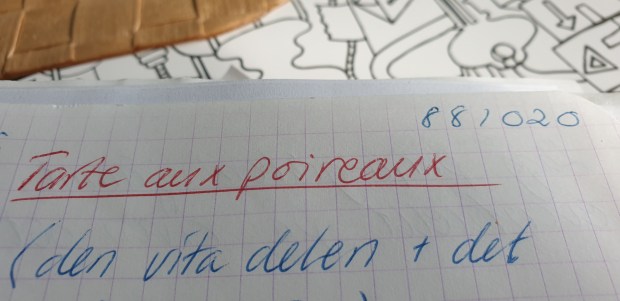 881020
Tarte aux poireaux
(den vita delen + det